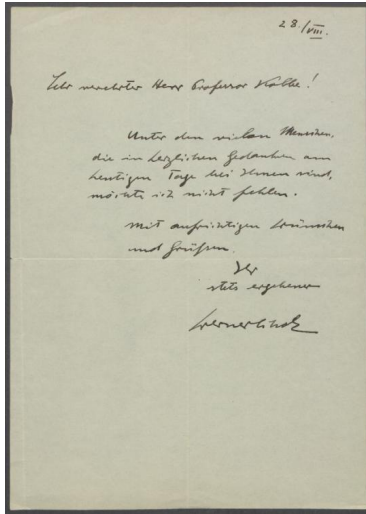 28./VIII.
Sehr verehrter Herr Professor Kolbe!
Unter den vielen Menschen,
die in herzlichen Gedanken am
heutigen Tage bei Ihnen sind,
möchte ich nicht fehlen.
Mit aufrichtigen Wünschen
und Grüßen.
Ihr
stets ergebener